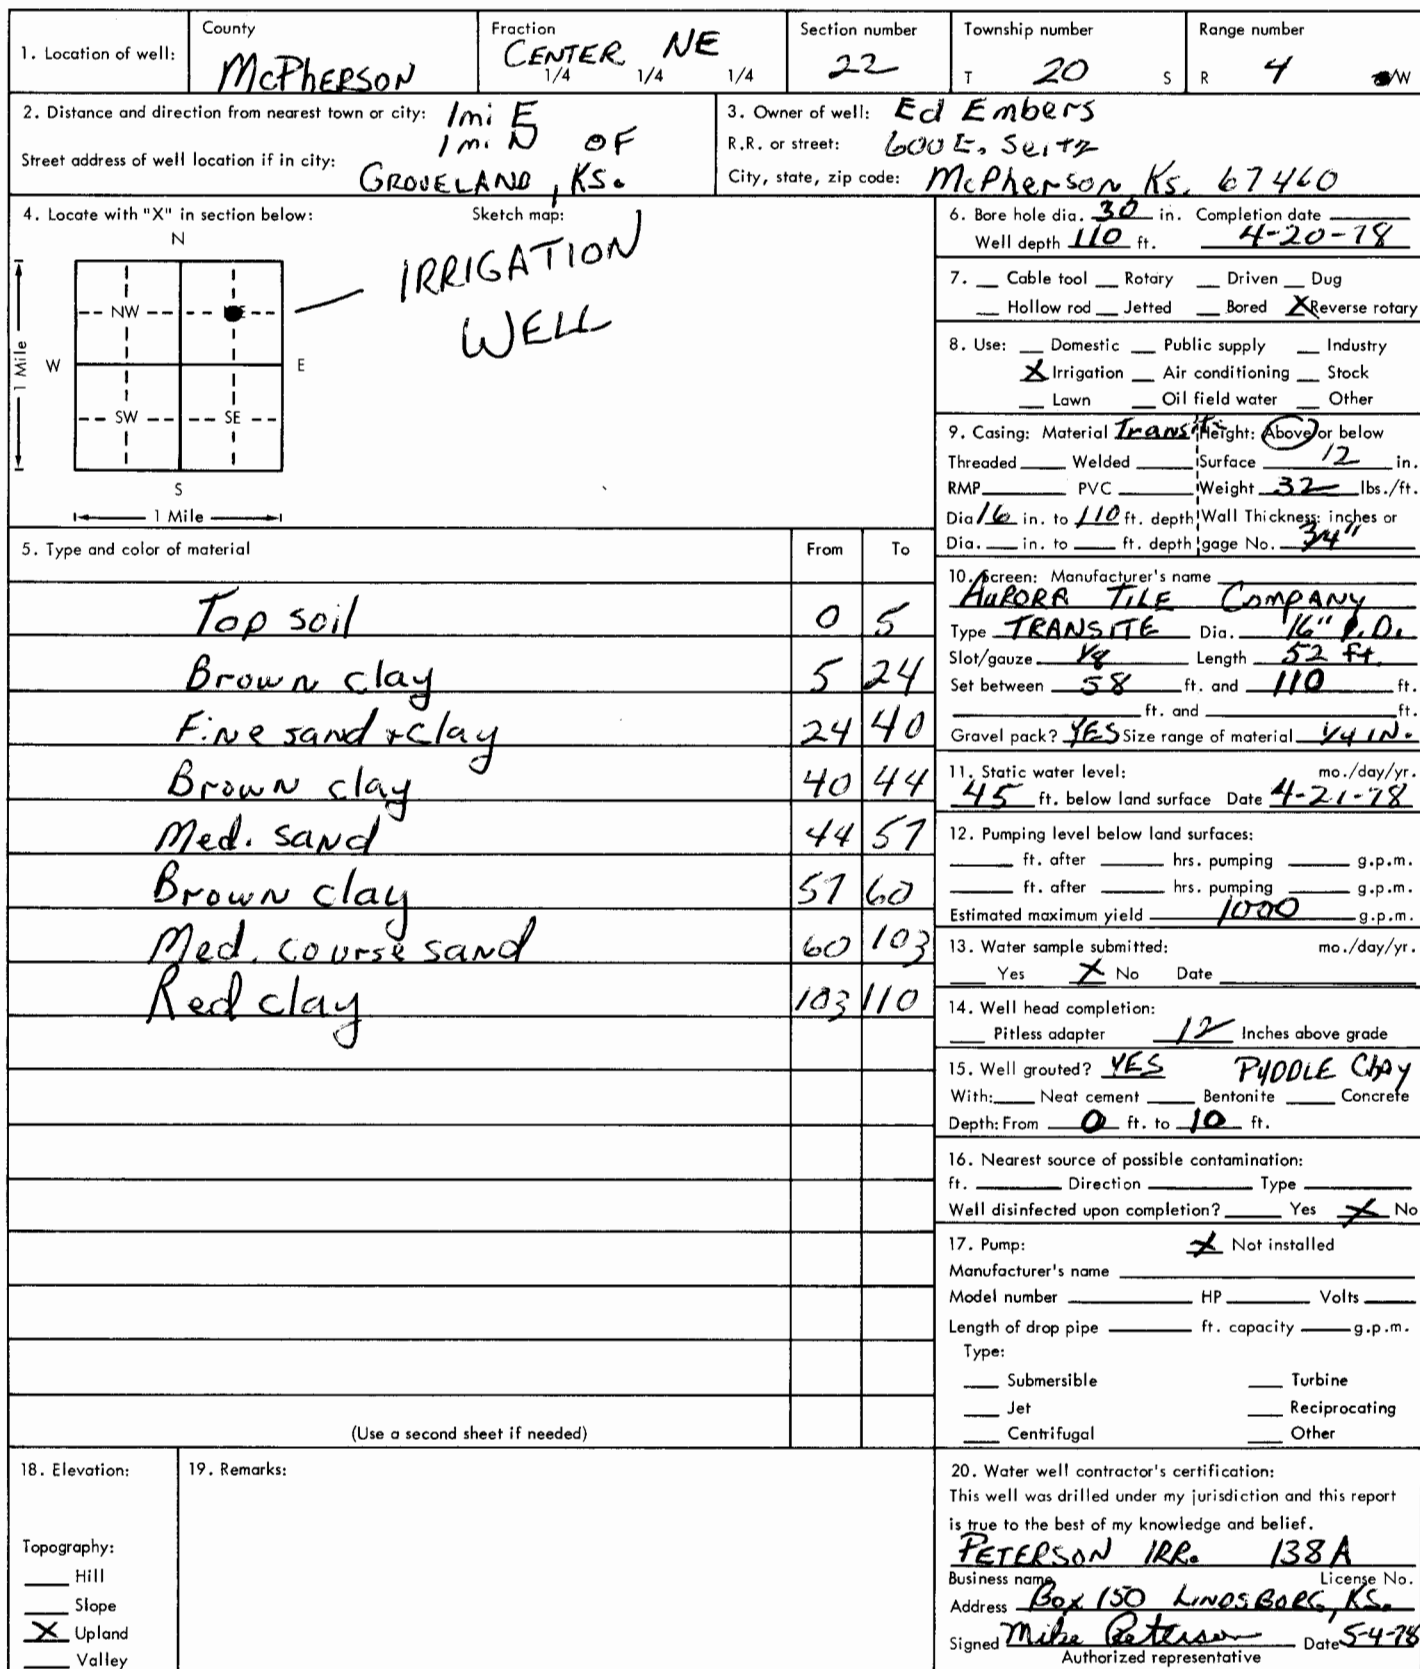 1. Location of well:
County
McPherson
Fraction
CENTER NE
1/4 1/4 1/4
Section number
22
Township number
T 20 S
Range number
R 4 /W
2. Distance and direction from nearest town or city: 1mi E
1mi N OF
Street address of well location if in city:
GROVELAND, KS.
3. Owner of well: Ed Embers
R.R. or street: 600 E. Seitz
City, state, zip code: McPherson Ks. 67460
4. Locate with "X" in section below: Sketch map:
N
NW
W E
SW SE
S
1 Mile
1 Mile
IRRIGATION
WELL
5. Type and color of material From To
Top soil 0 5
Brown clay 5 24
Fine sand + clay 24 40
Brown clay 40 44
Med. sand 44 57
Brown clay 57 60
Med. course sand 60 103
Red clay 103 110
(Use a second sheet if needed)
6. Bore hole dia. 30 in. Completion date
Well depth 110 ft. 4-20-78
7. Cable tool Rotary Driven Dug
Hollow rod Jetted Bored X Reverse rotary
8. Use: Domestic Public supply Industry
X Irrigation Air conditioning Stock
Lawn Oil field water Other
9. Casing: Material Transite Height: Above or below
Threaded Welded Surface 12 in.
RMP PVC Weight 32 lbs./ft.
Dia 16 in. to 110 ft. depth Wall Thickness: inches or
Dia. in. to ft. depth gage No. 3/4"
10. Screen: Manufacturer's name
AURORA TILE COMPANY
Type TRANSITE Dia. 16" I.D.
Slot/gauze 1/8 Length 52 ft.
Set between 58 ft. and 110 ft.
ft. and ft.
Gravel pack? YES Size range of material 1/4 IN.
11. Static water level: mo./day/yr.
45 ft. below land surface Date 4-21-78
12. Pumping level below land surfaces:
ft. after hrs. pumping g.p.m.
ft. after hrs. pumping g.p.m.
Estimated maximum yield 1000 g.p.m.
13. Water sample submitted: mo./day/yr.
Yes X No Date
14. Well head completion:
Pitless adapter 12 Inches above grade
15. Well grouted? YES PUDDLE CLAY
With: Neat cement Bentonite Concrete
Depth: From 0 ft. to 10 ft.
16. Nearest source of possible contamination:
ft. Direction Type
Well disinfected upon completion? Yes X No
17. Pump: X Not installed
Manufacturer's name
Model number HP Volts
Length of drop pipe ft. capacity g.p.m.
Type:
Submersible Turbine
Jet Reciprocating
Centrifugal Other
18. Elevation:
Topography:
Hill
Slope
X Upland
Valley
19. Remarks:
20. Water well contractor's certification:
This well was drilled under my jurisdiction and this report
is true to the best of my knowledge and belief.
PETERSON IRR. 138A
Business name License No.
Address Box 150 LINDSBORG, KS.
Signed Mike Peterson Date 5-4-78
Authorized representative